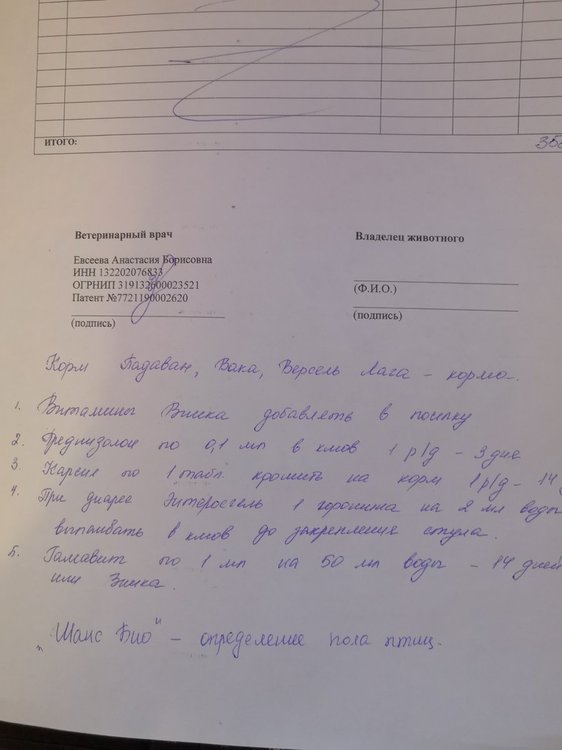 ИТОГО:
Ветеринарный врач
Владелец животного
Евсеева Анастасия Борисовна
ИНН 132202076833
ОГРНИП 319132600023521
Патент №7721190002620
(подпись)
(Ф.И.О.)
(подпись)
Корм Падаван, Вака, Версель Лага - корма.
1. Витамины добавлять в поилку
2. Преднизолон по 0,1 мл в клюв 1 р/д - 3 дня
3. Карсил по 1 табл. крошить на корм 1 р/д - 14
4. При диарее Энтеросгель 1 горошина на 2 мл воды
выпаивать в клюв до закрепления стула.
5. Гамавит по 1 мл на 50 мл воды - 14 дней
или
"Шанс Био" - определение пола птиц.